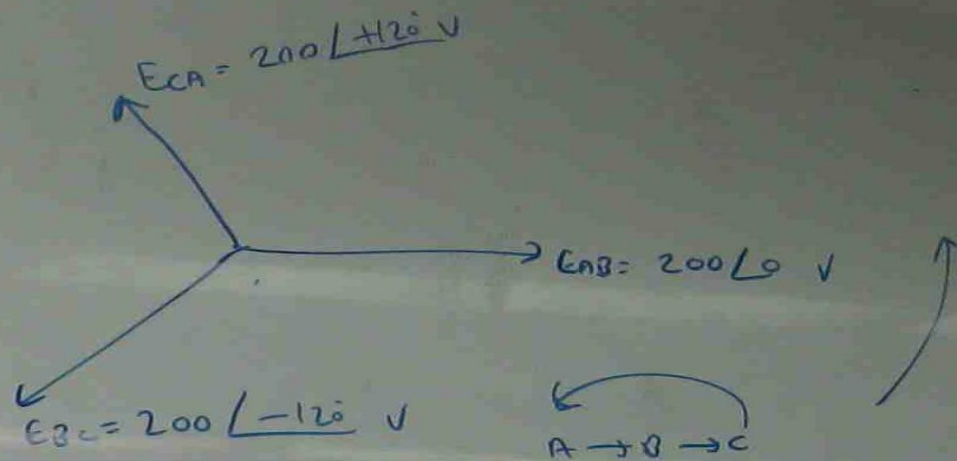 ECA = 200 ∠+120° V
EAB = 200 ∠0 V
EBC = 200 ∠-120° V
A → B → C